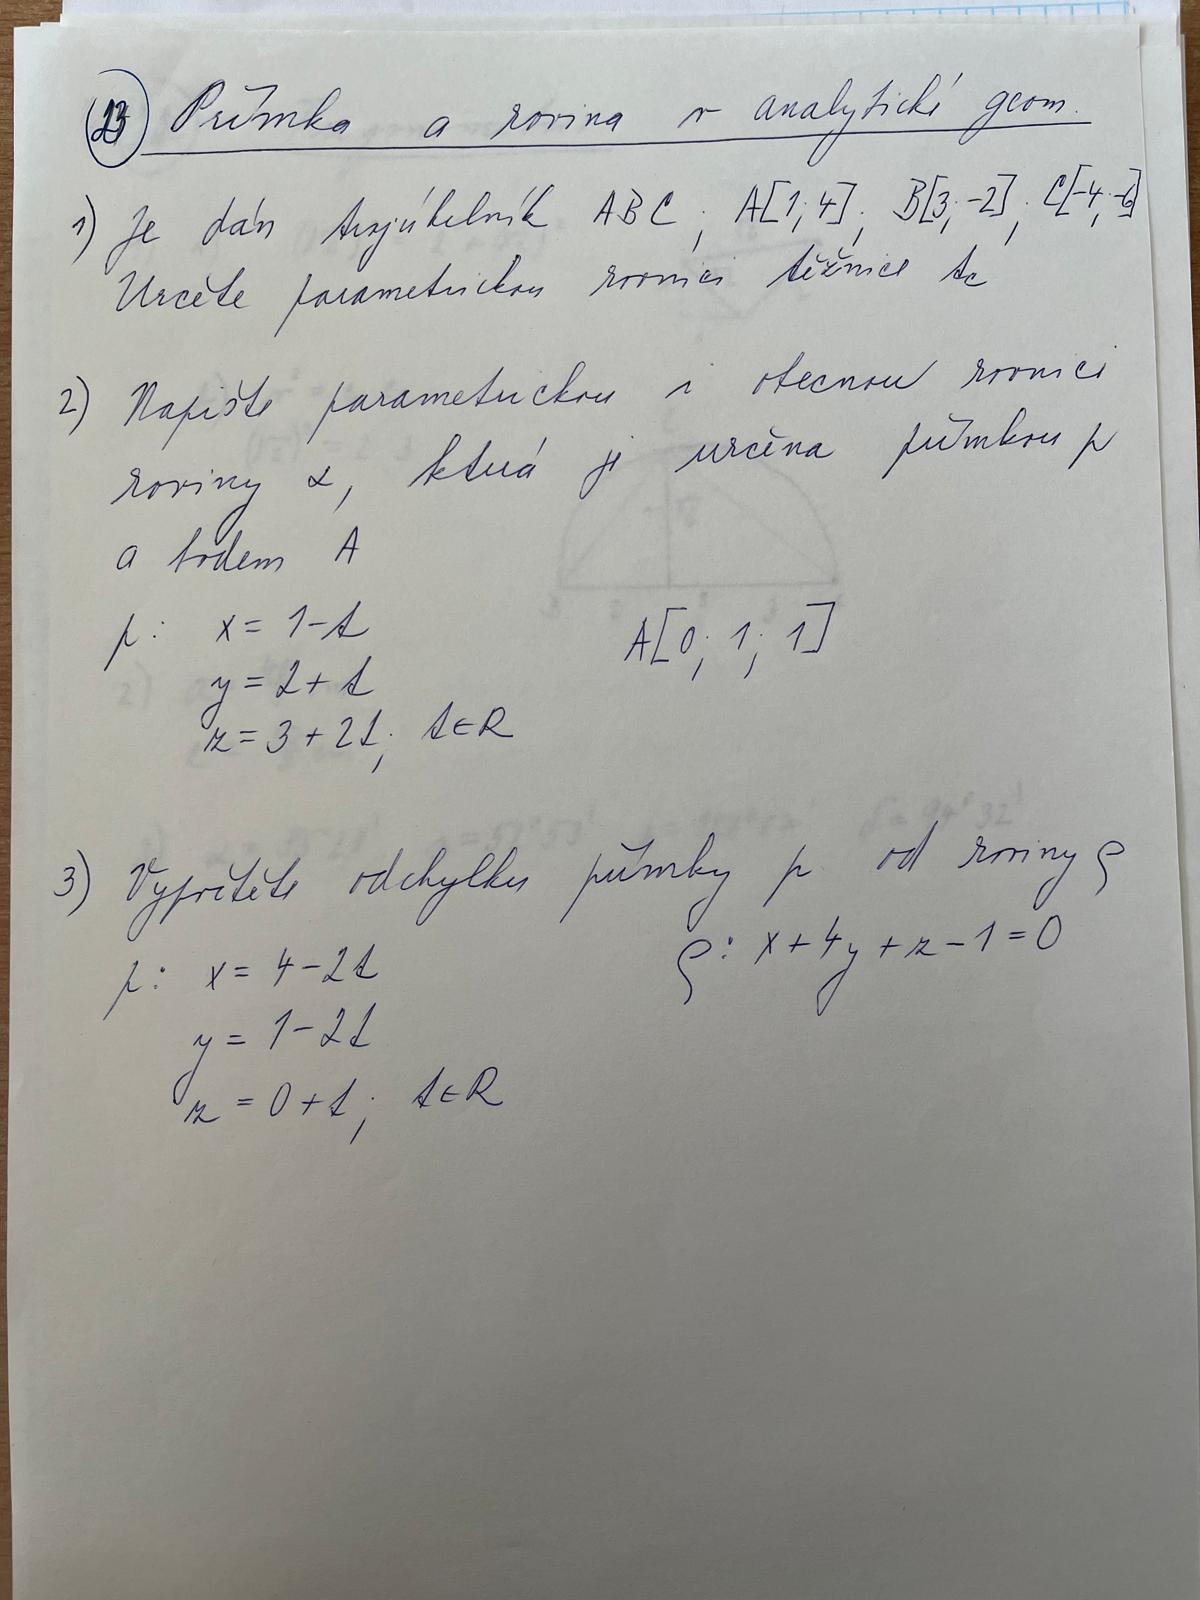 23 Přímka a rovina v analytické geom.
1) Je dán trojúhelník ABC; A[1;4]; B[3;-2]; C[-4;-6]
Určete parametrickou rovnici těžnice tc
2) Napište parametrickou i obecnou rovnici
roviny α, která je určena přímkou p
a bodem A
p: x = 1-t
A[0; 1; 1]
y = 2+t
z = 3+2t; t∈R
3) Vypočtěte odchylku přímky p od roviny ρ
p: x = 4-2t
ρ: x+4y+z-1=0
y = 1-2t
z = 0+t; t∈R